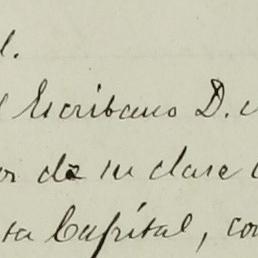 l.
l Escribano D.
or de su clase
sta Capital, con